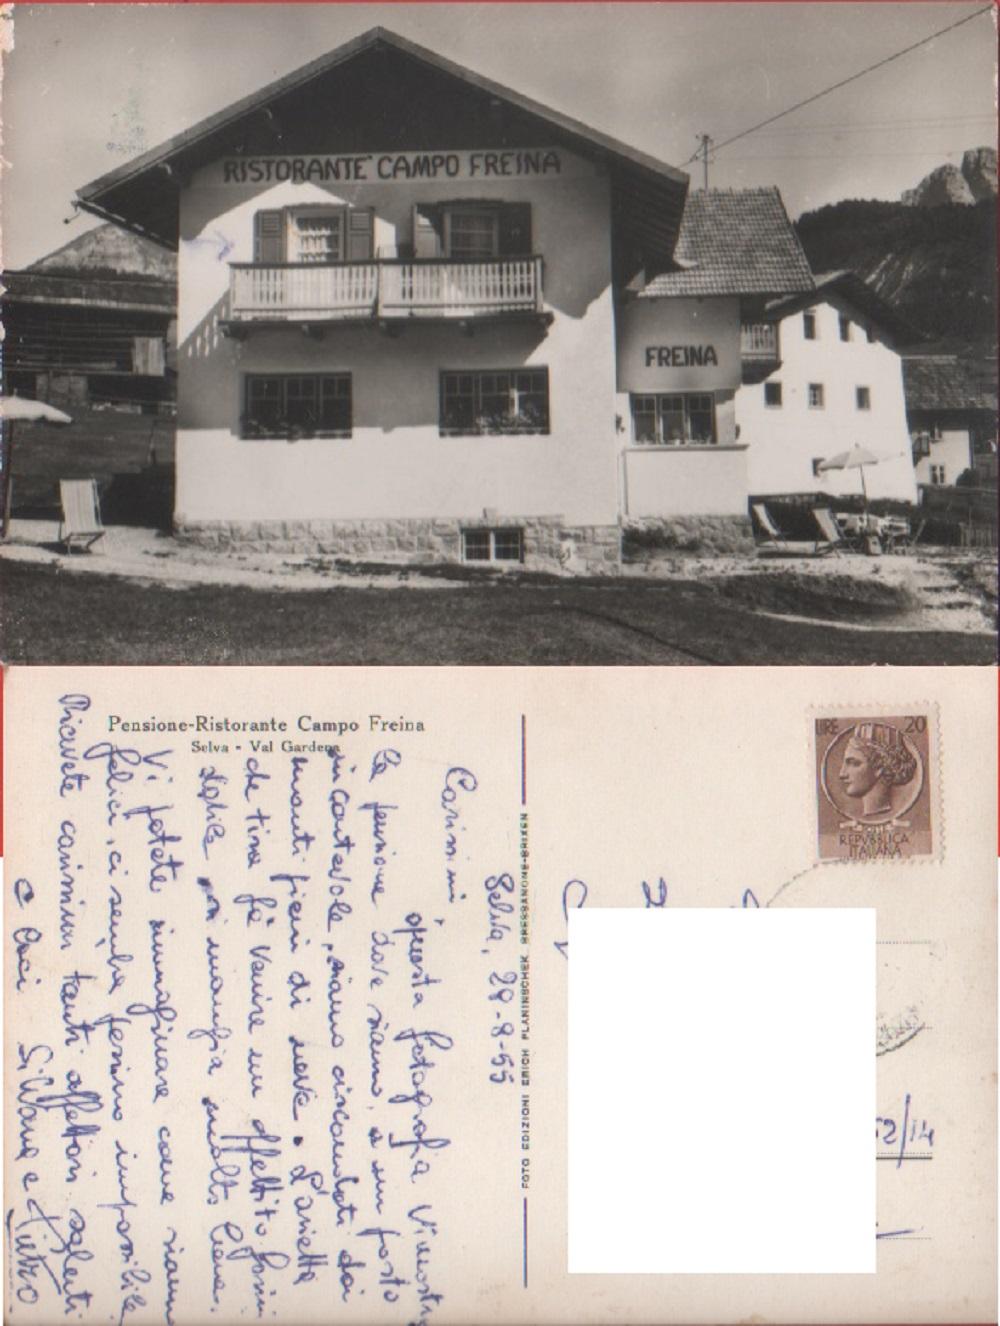 RISTORANTE CAMPO FREINA
FREINA
Pensione-Ristorante Campo Freina
Selva - Val Gardena
LIRE 20
REPUBBLICA
ITALIANA
FOTO EDIZIONI ERICH PLANINSCHEK, BRESSANONE-BRIXEN
Selva, 29-8-55
Carissimi,
questa fotografia Vi mostra
la pensione dove siamo, è un posto
incantevole, siamo circondati dai
monti pieni di neve. L'arietta
che tira fa venire un appetito
e si mangia molto bene.
Vi potete immaginare come siamo
felici, ci sembra persino impossibile.
Ricevete carissimi tanti affettuosi saluti
e baci Silvana e Pietro
52/14